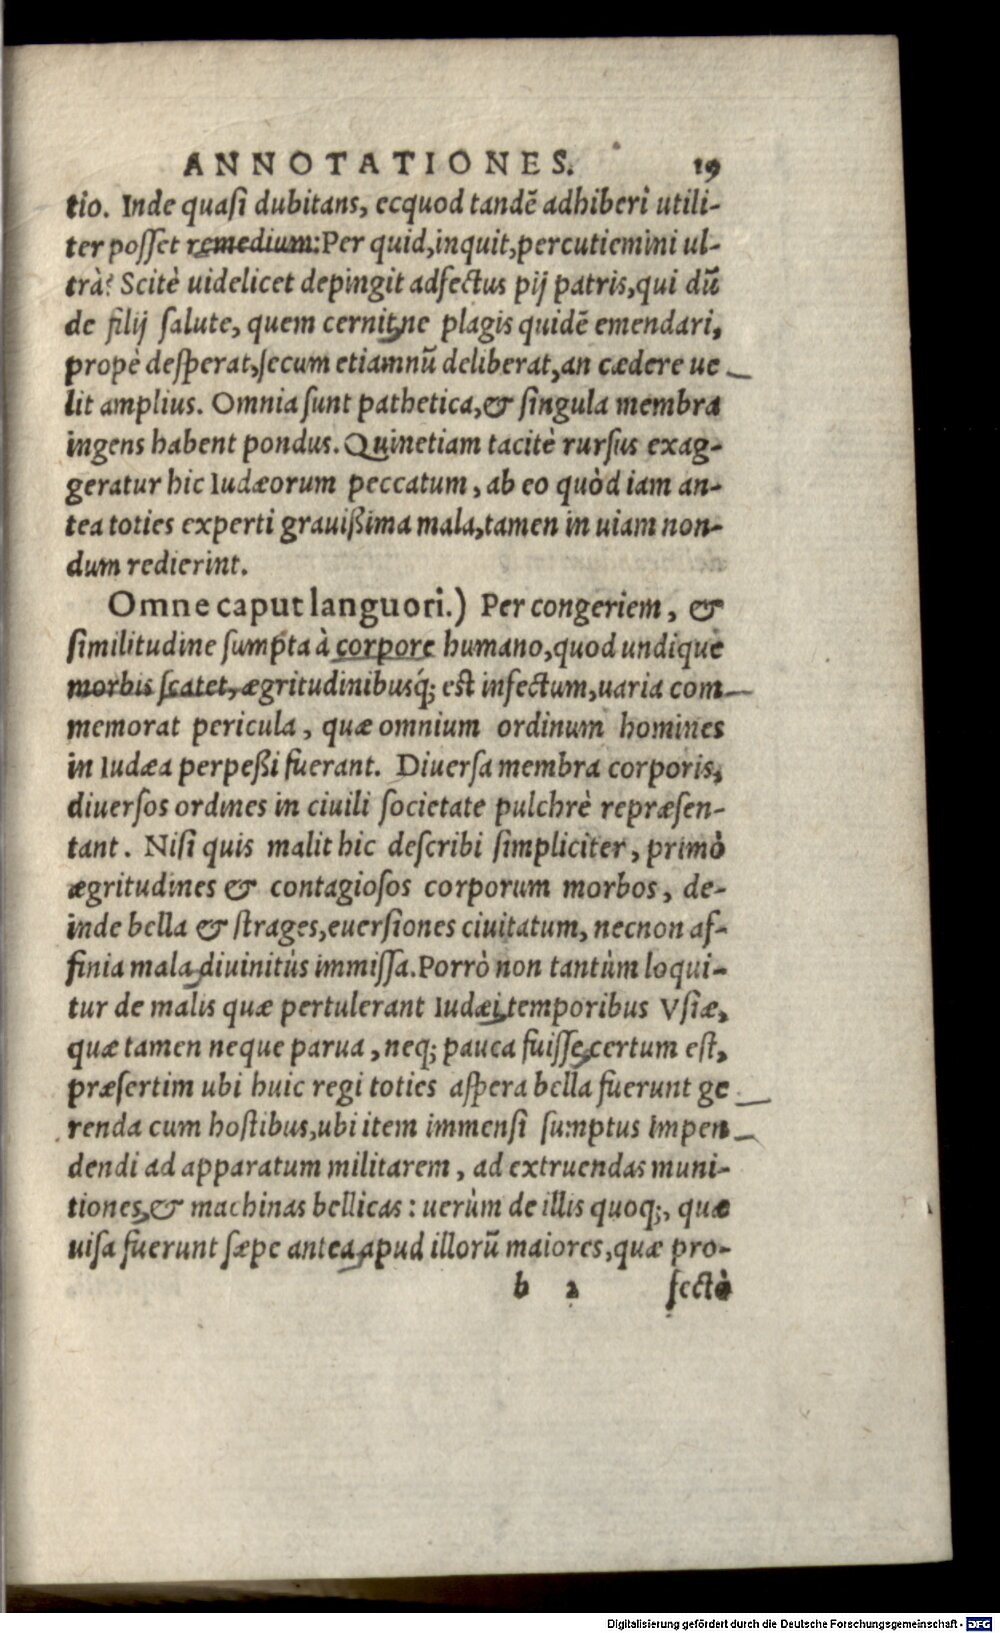 ANNOTATIONES. 19
tio. Inde quasi dubitans, ecquod tandẽ adhiberi utili-
ter posset remedium: Per quid, inquit, percutiemini ul-
trà? Scitè uidelicet depingit adfectus pij patris, qui dũ
de filij salute, quem cernit, ne plagis quidẽ emendari,
propè desperat, secum etiamnũ deliberat, an cædere ue
lit amplius. Omnia sunt pathetica, & singula membra
ingens habent pondus. Quinetiam tacitè rursus exag-
geratur hic Iudæorum peccatum, ab eo quòd iam an-
tea toties experti grauißima mala, tamen in uiam non-
dum redierint.
Omne caput languori.) Per congeriem, &
similitudine sumpta à corpore humano, quod undique
morbis scatet, ægritudinibusq́; est infectum, uaria com
memorat pericula, quæ omnium ordinum homines
in Iudæa perpeßi fuerant. Diuersa membra corporis,
diuersos ordines in ciuili societate pulchrè repræsen-
tant. Nisi quis malit hic describi simpliciter, primò
ægritudines & contagiosos corporum morbos, de-
inde bella & strages, euersiones ciuitatum, necnon af-
finia mala, diuinitùs immissa. Porrò non tantùm loqui-
tur de malis quæ pertulerant Iudæi, temporibus Vsiæ,
quæ tamen neque parua, neq; pauca fuisse, certum est,
præsertim ubi huic regi toties aspera bella fuerunt ge
renda cum hostibus, ubi item immensi sumptus impen
dendi ad apparatum militarem, ad extruendas muni-
tiones, & machinas bellicas: uerùm de illis quoq;, quæ
uisa fuerunt sæpe antea, apud illorũ maiores, quæ pro-
b 2 fectò
Digitalisierung gefördert durch die Deutsche Forschungsgemeinschaft - DFG